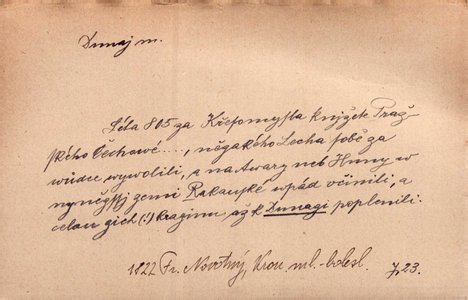 Dunaj m.
Léta 805 za Křepomysla knjžete Praž-
ského Čechowé...., něgakého Lecha sobě za
wůdce wywolili, a na Awary neb Huny w
nyněgssj zemi Rakauské wpád včinili, a
celau gich (!) kraginu až k Dunagi poplenili.
1822 Fr. Novotný, Kron. ml.-bolesl. 7, 23.